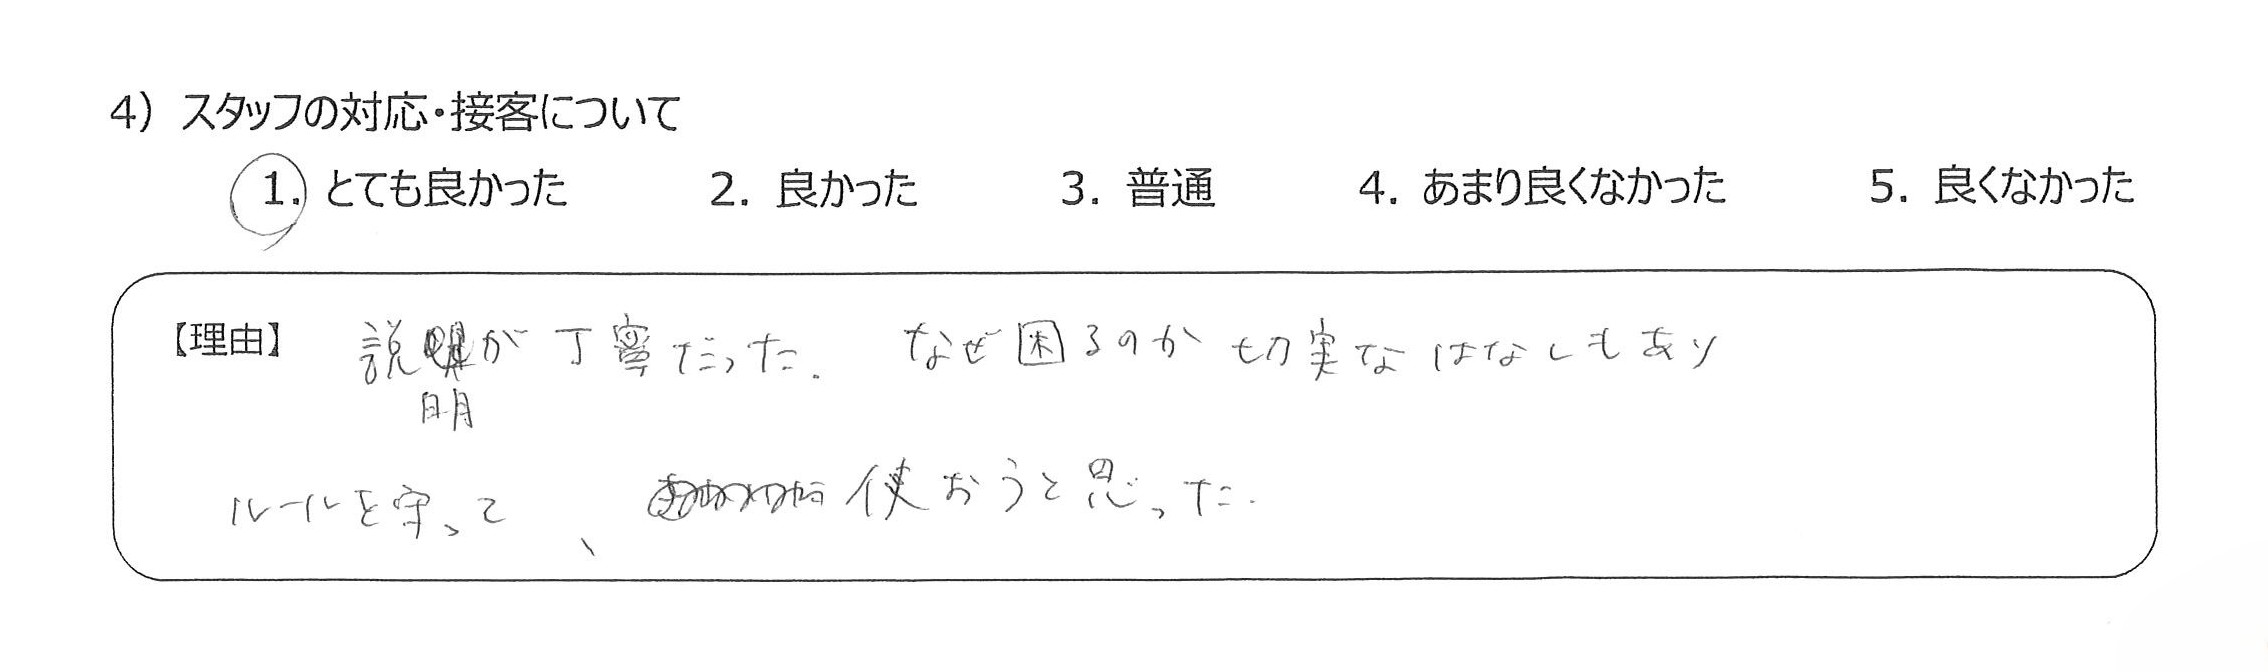 4) スタッフの対応・接客について
1. とても良かった 2. 良かった 3. 普通 4. あまり良くなかった 5. 良くなかった
【理由】 説明が丁寧だった. なぜ困るのか切実なはなしもあり
ルールを守って、使おうと思った.